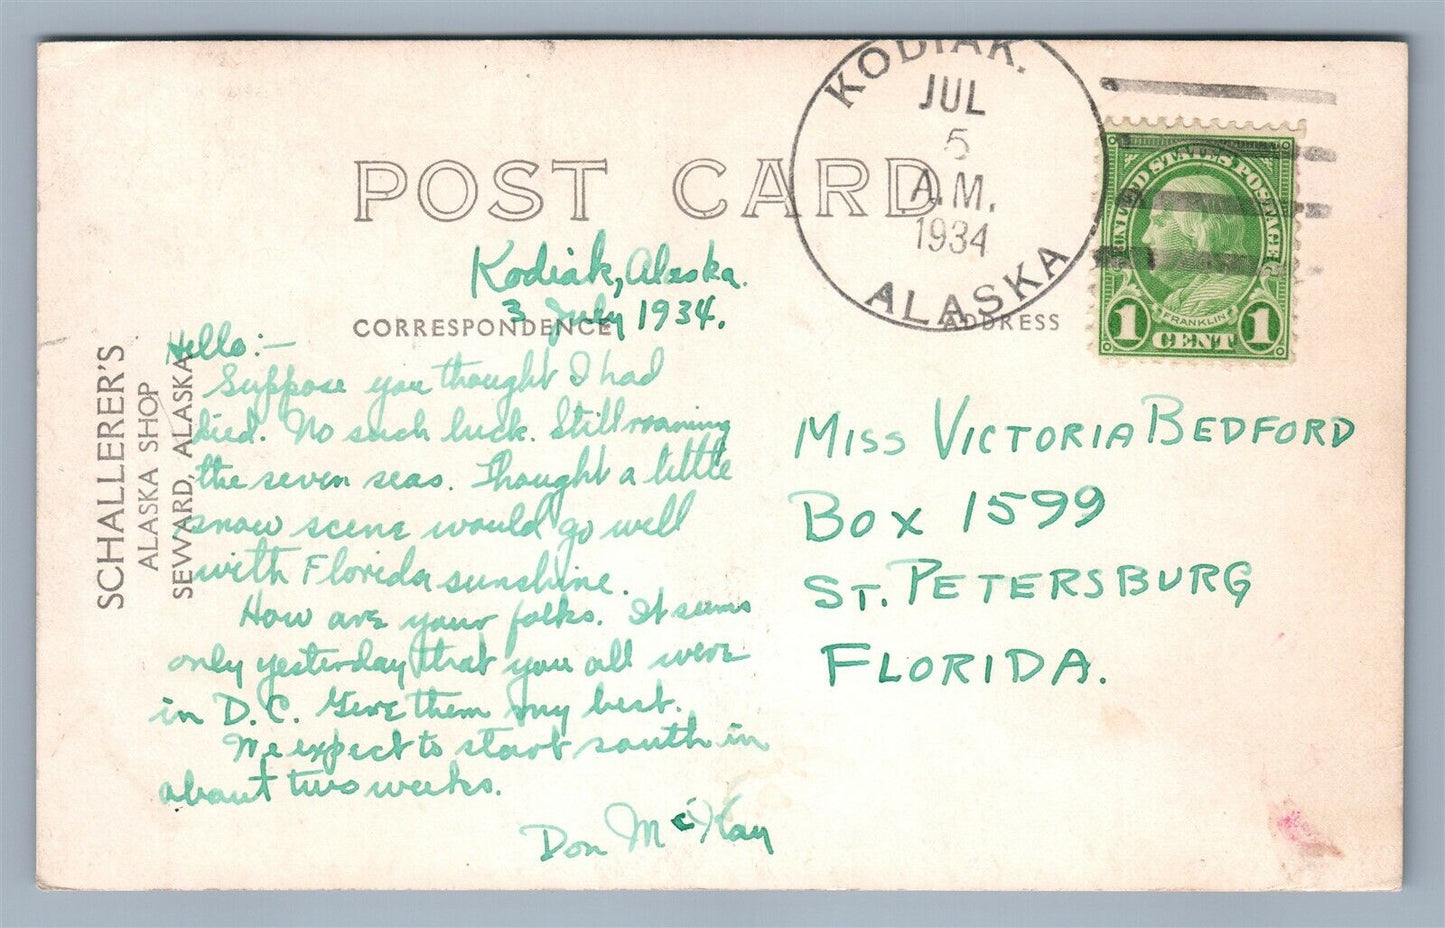 KODIAK,
JUL
5
A.M.
1934
ALASKA
UNITED STATES POSTAGE
FRANKLIN
1 CENT 1
POST CARD
CORRESPONDENCE
ADDRESS
SCHALLERER'S
ALASKA SHOP
SEWARD, ALASKA
Kodiak, Alaska.
3 July 1934.
Hello:—
Suppose you thought I had
died. No such luck. Still roaming
the seven seas. Thought a little
snow scene would go well
with Florida sunshine.
How are your folks. It seems
only yesterday that you all were
in D.C. Give them my best.
We expect to start south in
about two weeks.
Don McKay
MISS VICTORIA BEDFORD
BOX 1599
ST. PETERSBURG
FLORIDA.